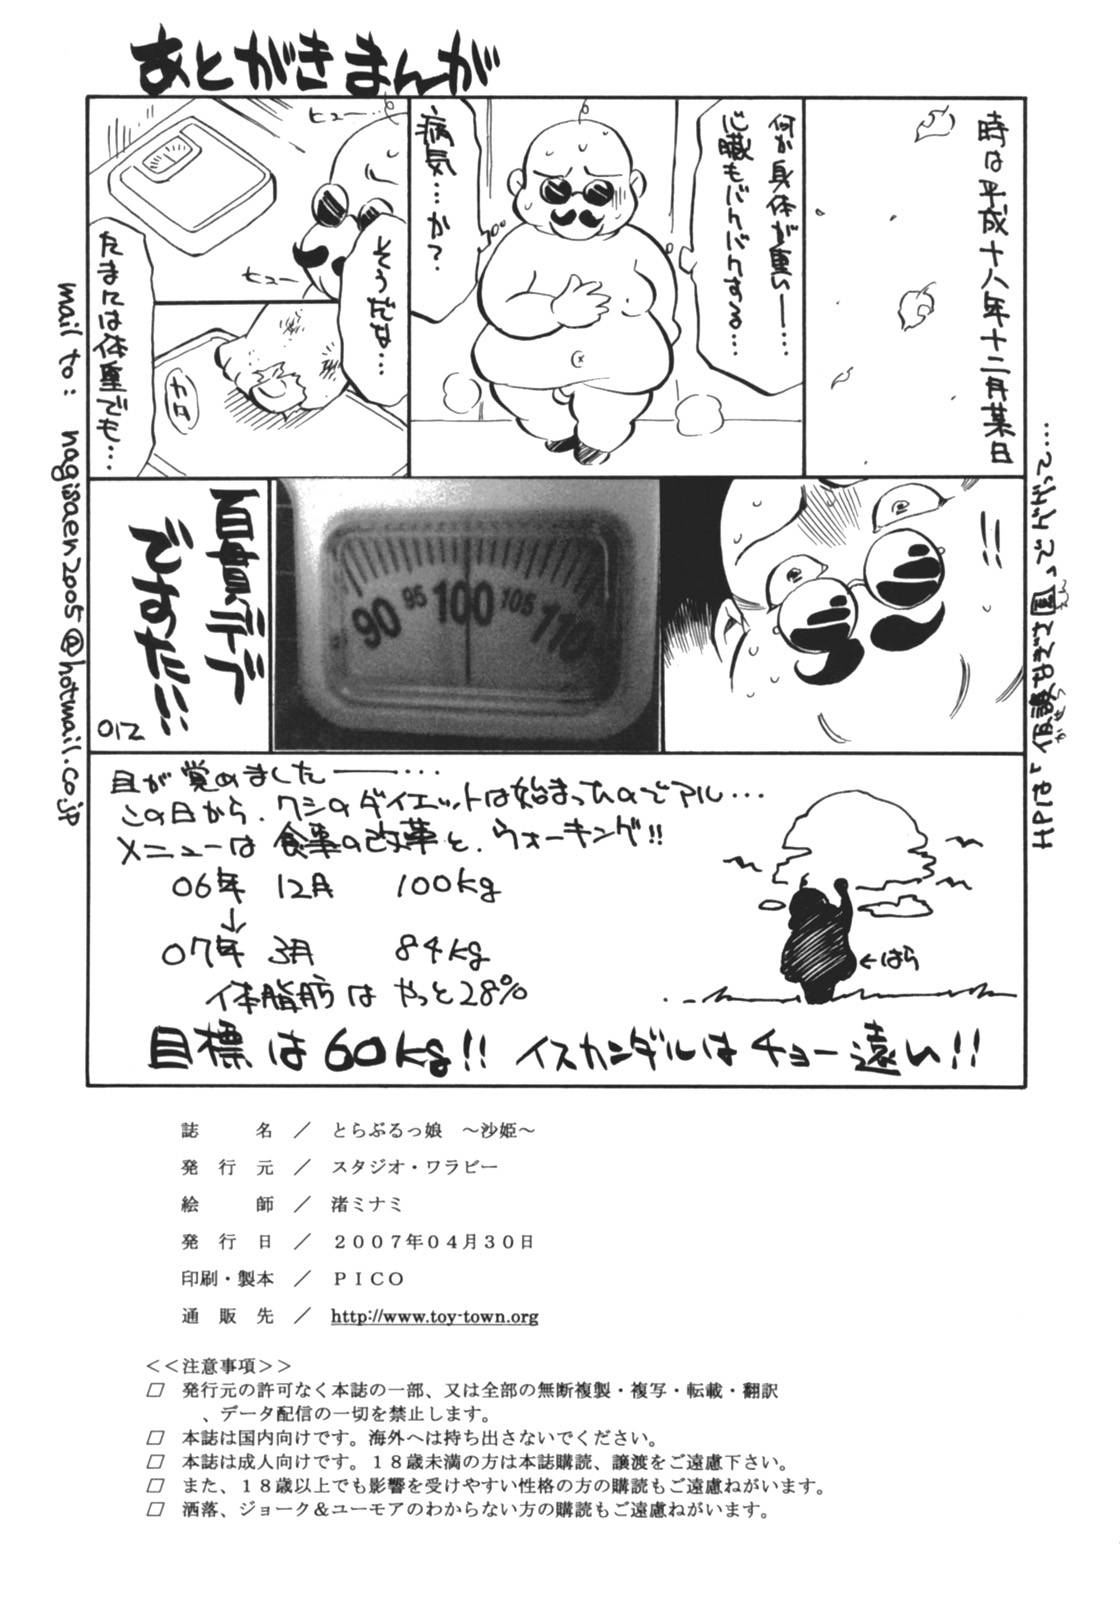 あとがきまんが
時は平成十八年十二月某日
何か身体が重い――…
心臓もバクバクする…
病気…か?
ヒュー…
ヒュー
そうだな…
たまには体重でも…
カタ
!!
90 95 100 105 110
百貫デブ
ですた!!!
012
目が覚めました――…
この日から、ワシのダイエットは始まったのでアル…
メニューは食事の改革と、ウォーキング!!
06年 12月 100kg
↓
07年 3月 84kg
体脂肪は やっと28%
←はら
目標は60kg!! イスカンダルは チョー遠い!!
mail to: nagisaen2005@hotmail.co.jp
誌名／とらぶるっ娘 ～沙姫～
発行元／スタジオ・ワラビー
絵師／渚ミナミ
発行日／２００７年０４月３０日
印刷・製本／ＰＩＣＯ
通販先／http://www.toy-town.org
＜＜注意事項＞＞
□ 発行元の許可なく本誌の一部、又は全部の無断複製・複写・転載・翻訳
、データ配信の一切を禁止します。
□ 本誌は国内向けです。海外へは持ち出さないでください。
□ 本誌は成人向けです。１８歳未満の方は本誌購読、譲渡をご遠慮下さい。
□ また、１８歳以上でも影響を受けやすい性格の方の購読もご遠慮ねがいます。
□ 洒落、ジョーク＆ユーモアのわからない方の購読もご遠慮ねがいます。